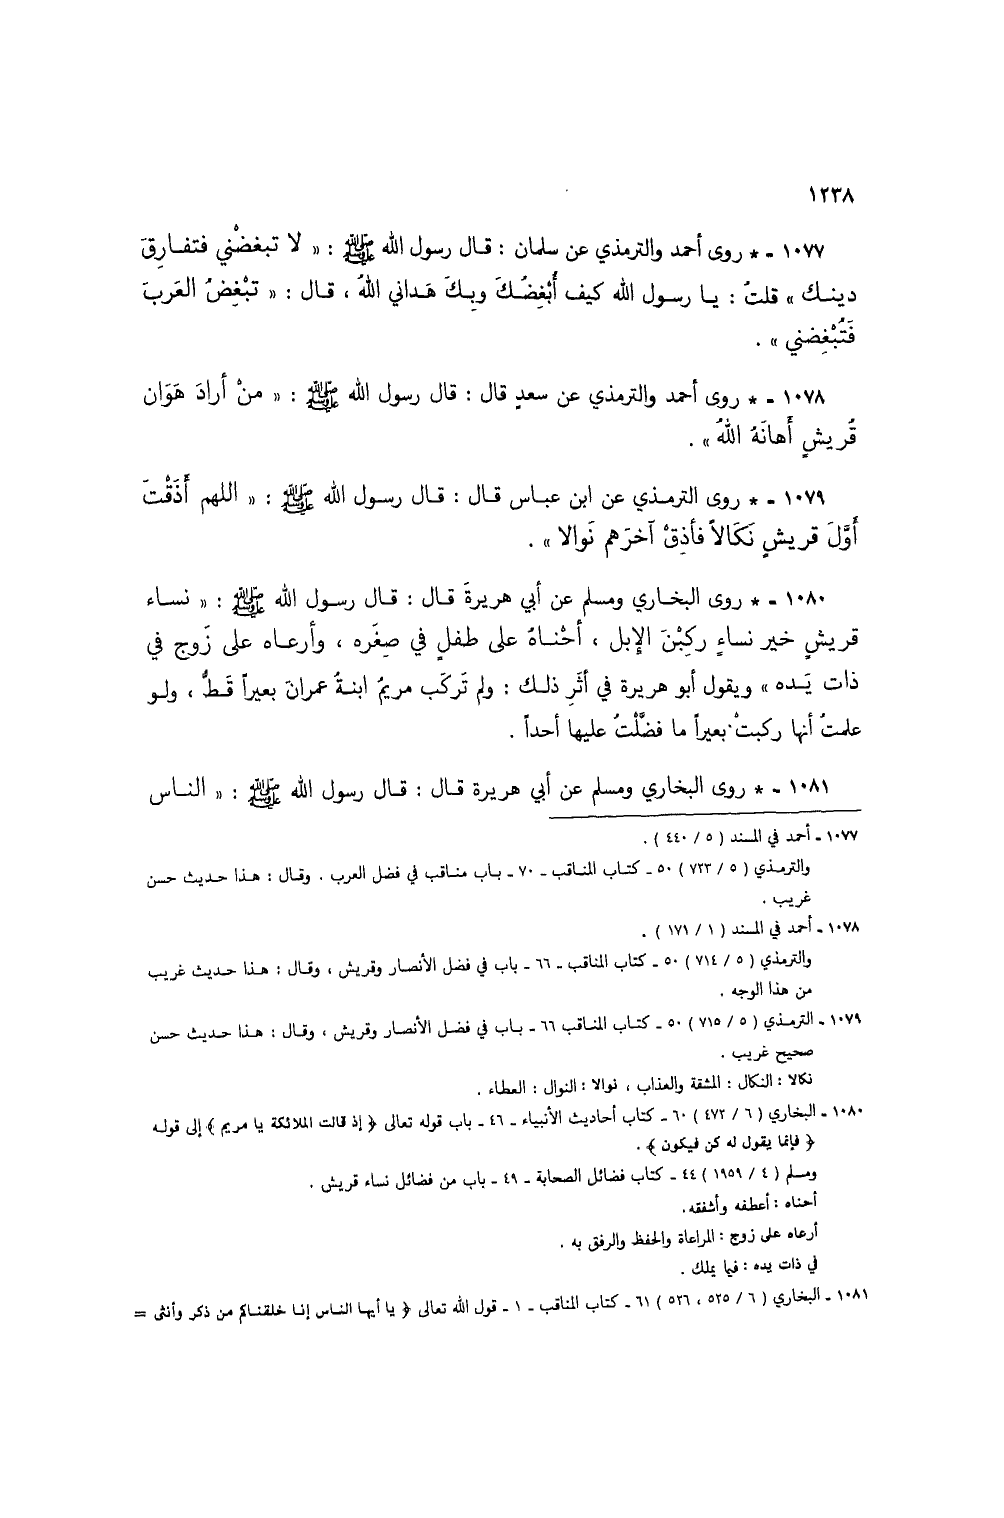 ١٢٣٨
١٠٧٧ - * روى أحمد والترمذي عن سلمان : قال رسول الله ﷺ : « لا تبغضْني فتفارِقَ
دينك » قلتُ : يا رسول الله كيف أُبْغِضُكَ وبِكَ هَداني اللهُ ، قال : « تبْغِضُ العَربَ
فَتُبْغِضني » .
١٠٧٨ - * روى أحمد والترمذي عن سعدٍ قال : قال رسول الله ﷺ : « منْ أرادَ هَوَان
قُريشٍ أَهانَهُ اللهُ » .
١٠٧٩ - * روى الترمذي عن ابن عباس قال : قال رسول الله ﷺ : « اللهم أَذَقْتَ
أَوَّلَ قريشٍ نَكَالاً فأذِقْ آخرَهم نَوالا » .
١٠٨٠ - * روى البخاري ومسلم عن أبي هريرةَ قال : قال رسول الله ﷺ : « نساء
قريشٍ خير نساءٍ ركِبْنَ الإبل ، أحْناهُ على طفلٍ في صِغَره ، وأرعاه على زَوج في
ذات يَده » ويقول أبو هريرة في أثَرِ ذلك : ولم تَركَب مريمُ ابنةُ عمرانَ بعيراً قَطُّ ، ولو
علمتُ أنها ركبتْ بعيراً ما فضَّلْتُ عليها أحداً .
١٠٨١ - * روى البخاري ومسلم عن أبي هريرة قال : قال رسول الله ﷺ : « الناس
١٠٧٧ - أحمد في المسند ( ٥ / ٤٤٠ ) .
والترمذي ( ٥ / ٧٢٣ ) ٥٠ - كتاب المناقب - ٧٠ - باب مناقب في فضل العرب . وقال : هذا حديث حسن
غريب .
١٠٧٨ - أحمد في المسند ( ١ / ١٧١ ) .
والترمذي ( ٥ / ٧١٤ ) ٥٠ - كتاب المناقب - ٦٦ - باب في فضل الأنصار وقريش ، وقال : هذا حديث غريب
من هذا الوجه .
١٠٧٩ - الترمذي ( ٥ / ٧١٥ ) ٥٠ - كتاب المناقب ٦٦ - باب في فضل الأنصار وقريش ، وقال : هذا حديث حسن
صحيح غريب .
نكالا : النكال : المشقة والعذاب ، نوالا : النوال : العطاء .
١٠٨٠ - البخاري ( ٦ / ٤٧٢ ) ٦٠ - كتاب أحاديث الأنبياء - ٤٦ - باب قوله تعالى ﴿ إذ قالت الملائكة يا مريم ﴾ إلى قوله
﴿ فإنما يقول له كن فيكون ﴾ .
ومسلم ( ٤ / ١٩٥٩ ) ٤٤ - كتاب فضائل الصحابة - ٤٩ - باب من فضائل نساء قريش .
أحناه : أعطفه وأشفقه .
أرعاه على زوج : المراعاة والحفظ والرفق به .
في ذات يده : فيما يملك .
١٠٨١ - البخاري ( ٦ / ٥٢٥ ، ٥٢٦ ) ٦١ - كتاب المناقب - ١ - قول الله تعالى ﴿ يا أيها الناس إنا خلقناكم من ذكر وأنثى =